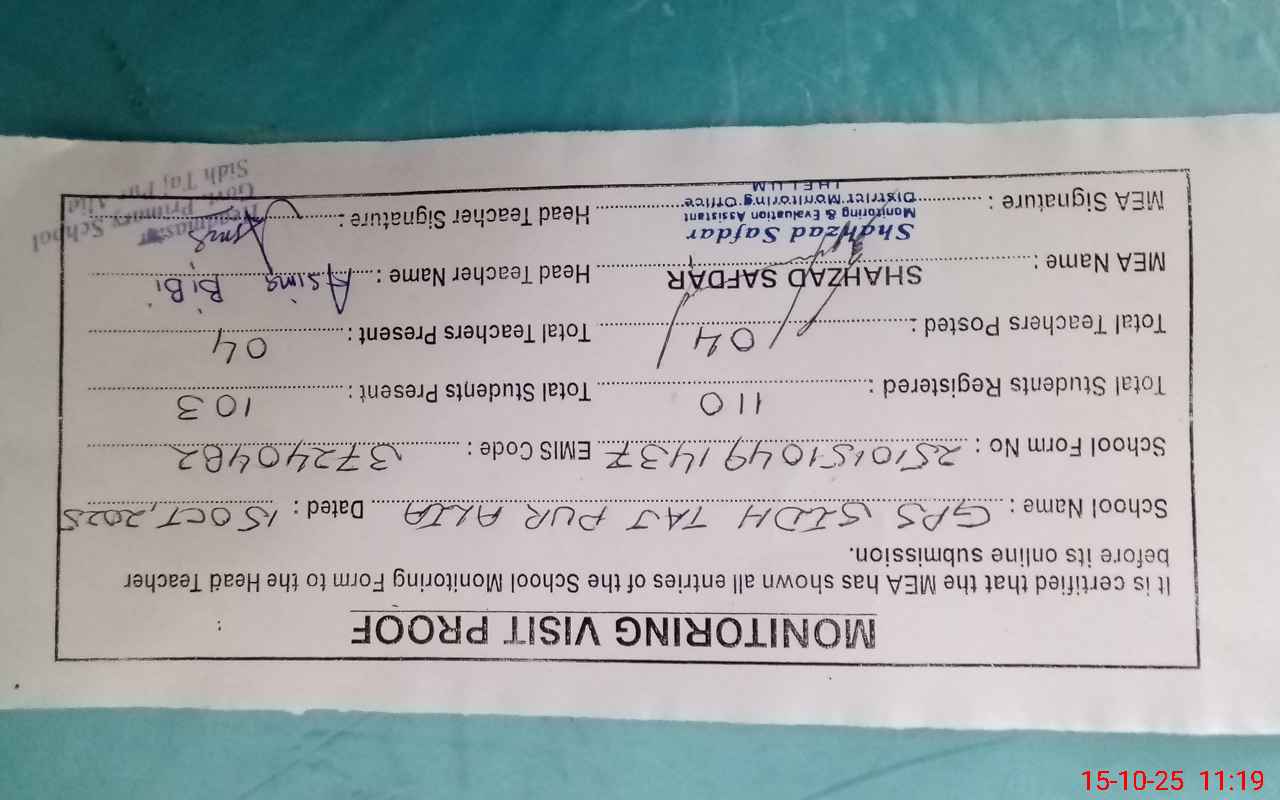 MONITORING VISIT PROOF
It is certified that the MEA has shown all entries of the School Monitoring Form to the Head Teacher
before its online submission.
School Name : GPS SIDH TAJ PUR ALIA Dated : 15 OCT, 2025
School Form No : 25101510491437 EMIS Code : 37240482
Total Students Registered : 110 Total Students Present : 103
Total Teachers Posted : 04 Total Teachers Present : 04
MEA Name : SHAHZAD SAFDAR Head Teacher Name : Asima BiBi
MEA Signature : Head Teacher Signature : Asma
Shahzad Safdar
Monitoring & Evaluation Assistant
District Monitoring Office
JHELUM
Headmaster
Govt Primary School
Sidh Taj Pur Alia
15-10-25 11:19